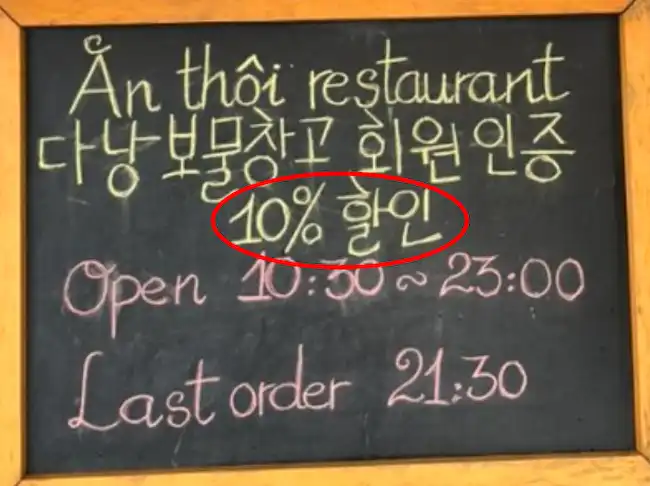 Ăn thôi restaurant
다낭보물창고 회원인증
10% 할인
Open 10:30 ~ 23:00
Last order 21:30